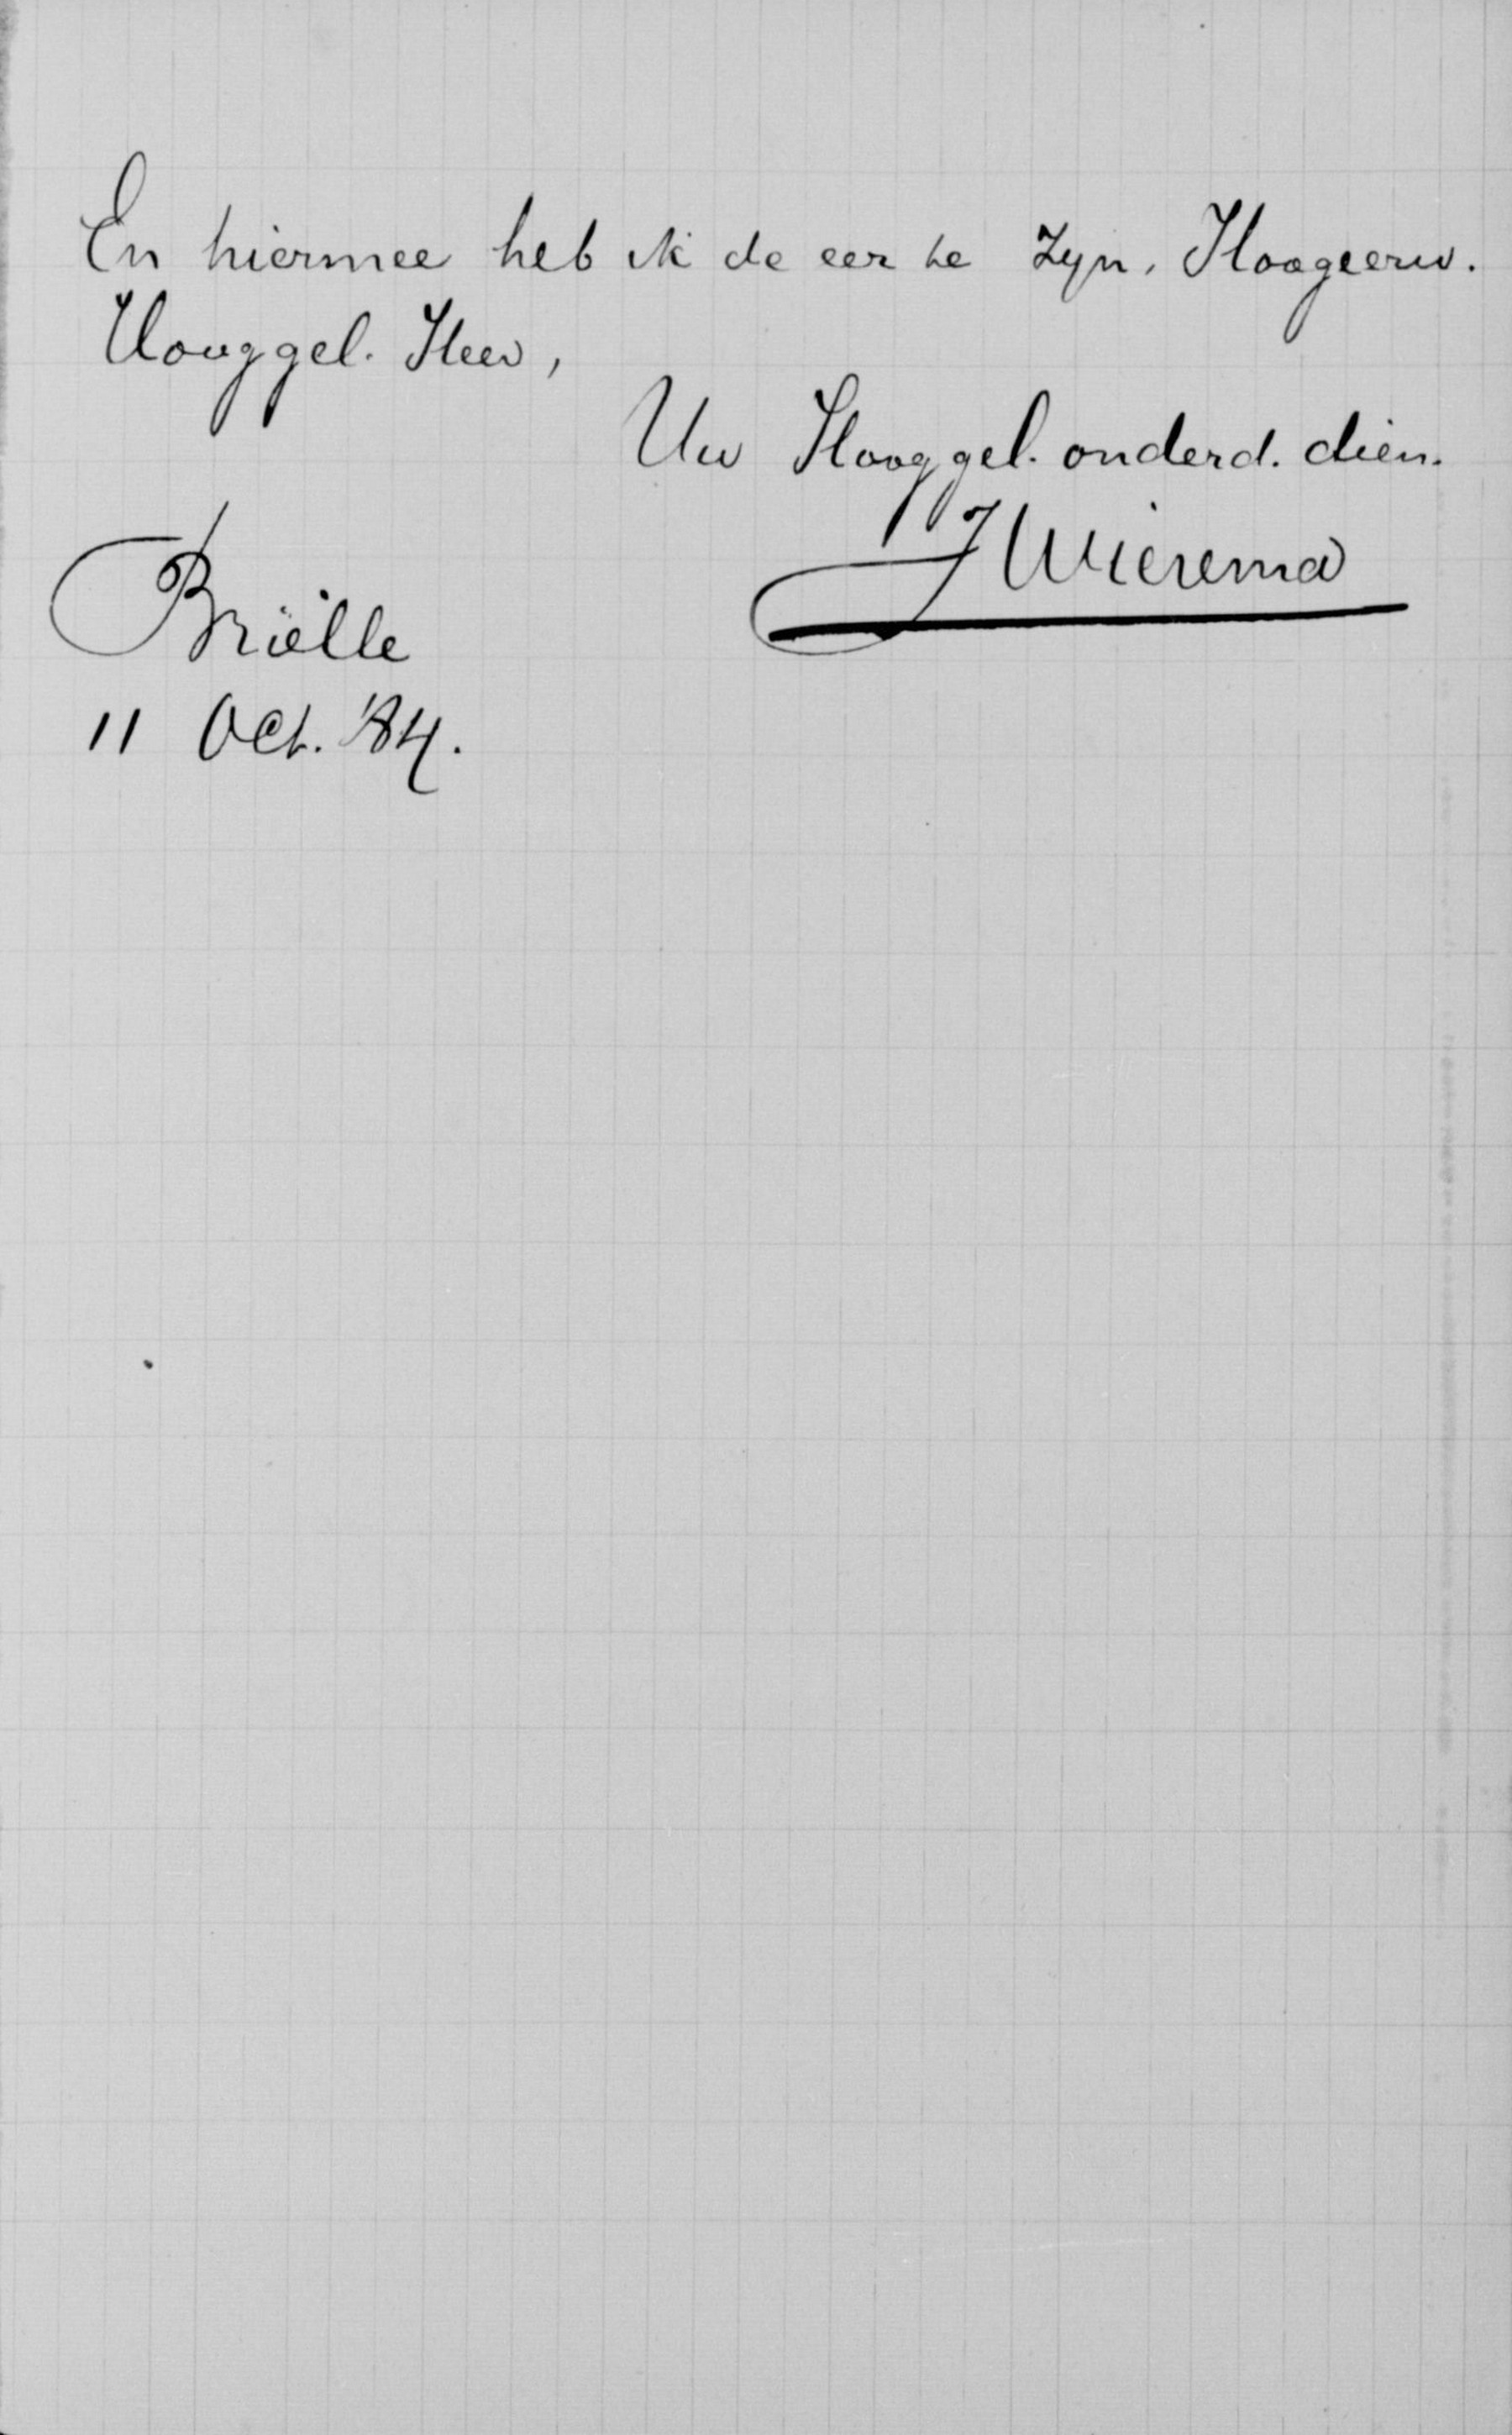 En hiermee heb ik de eer te zyn, Hoogeerw.
Hooggel. Heer,
Uw Hooggel. onderd. dien.
J Wierema
Briëlle
11 Oct. '84.